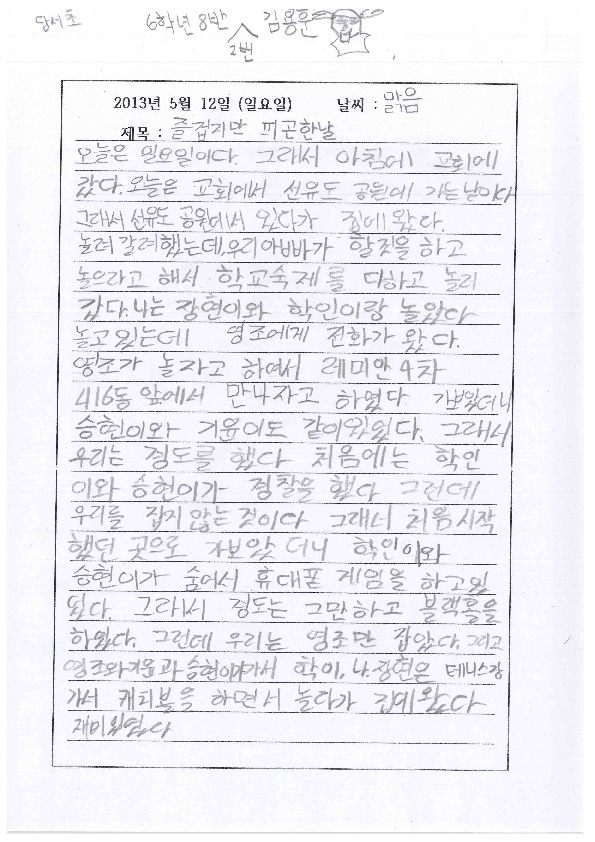 당서초 6학년 8반 2번 김용훈
2013년 5월 12일 (일요일) 날씨 : 맑음
제목 : 즐겁지만 피곤한날
오늘은 일요일이다. 그래서 아침에 교회에
갔다. 오늘은 교회에서 선유도 공원에 가는날이다
그래서 선유도 공원에서 있다가 집에 왔다.
놀려 갈려했는데, 우리아빠가 할것을 하고
놀으라고 해서 학교숙제를 다하고 놀러
갔다. 나는 장현이와 학인이랑 놀았다
놀고있는데 영조에게 전화가 왔다.
영조가 놀자고 하여서 래미안 4차
416동 앞에서 만나자고 하였다 가보았더니
승현이와 거윤이도 같이있었다. 그래서
우리는 경도를 했다 처음에는 학인
이와 승현이가 경찰을 했다 그런데
우리를 잡지 않는 것이다 그래서 처음시작
했던 곳으로 가보았더니 학인이와
승현이가 숨어서 휴대폰 게임을 하고있
었다. 그래서 경도는 그만하고 블랙홀을
하였다. 그런데 우리는 영조만 잡았다. 그리고
영조와거윤과 승현이가가서 학이, 나, 장현은 테니스장
가서 캐치볼을 하면서 놀다가 집에 왔다
재미있었다